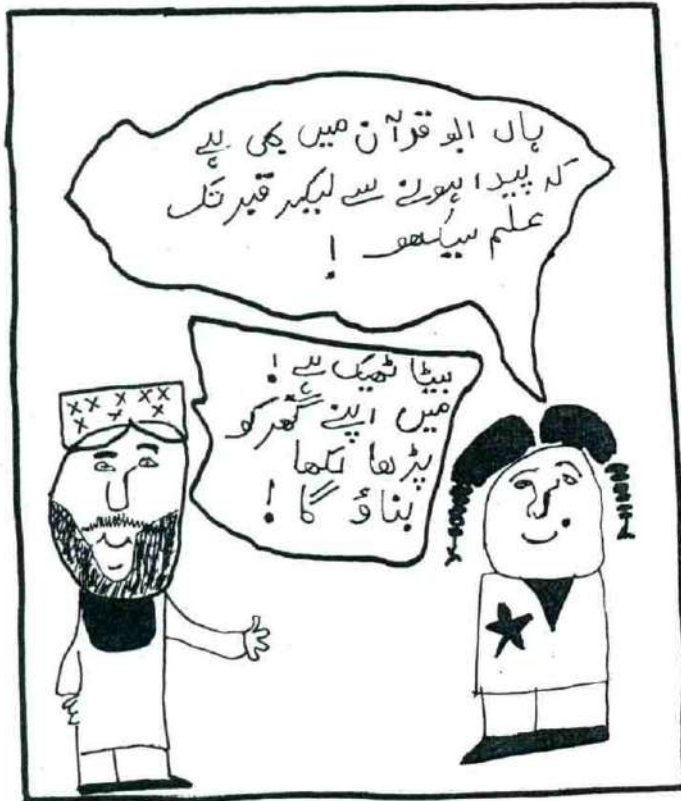 ہاں ابو قرآن میں بھی ہے
کہ پیدا ہونے سے لیکر قبر تک
علم سیکھو !
بیٹا ٹھیک ہے !
میں اپنے گھر کو
پڑھا لکھا
بناؤ گا !